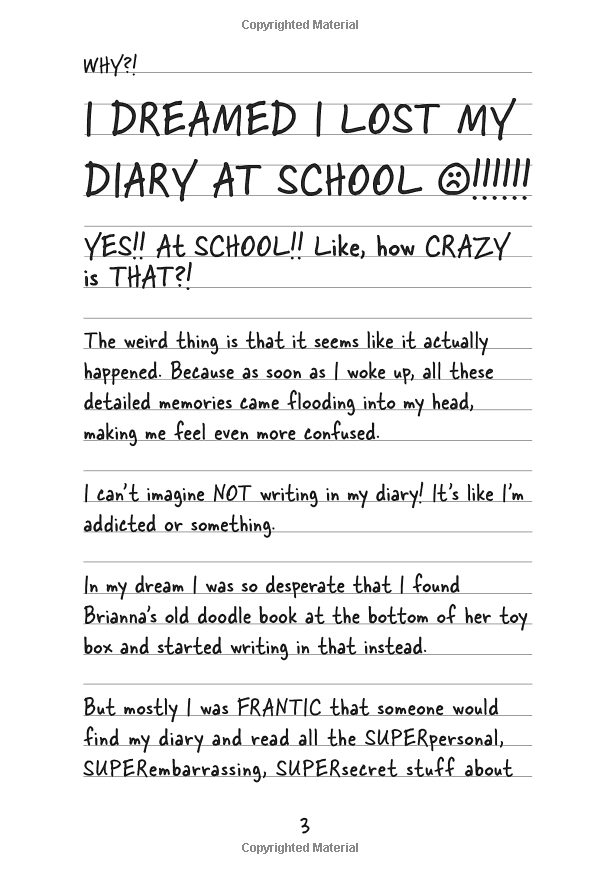 Copyrighted Material
WHY?!
I DREAMED I LOST MY
DIARY AT SCHOOL ☹!!!!!!
YES!! At SCHOOL!! Like, how CRAZY
is THAT?!
The weird thing is that it seems like it actually
happened. Because as soon as I woke up, all these
detailed memories came flooding into my head,
making me feel even more confused.
I can't imagine NOT writing in my diary! It's like I'm
addicted or something.
In my dream I was so desperate that I found
Brianna's old doodle book at the bottom of her toy
box and started writing in that instead.
But mostly I was FRANTIC that someone would
find my diary and read all the SUPERpersonal,
SUPERembarrassing, SUPERsecret stuff about
3
Copyrighted Material